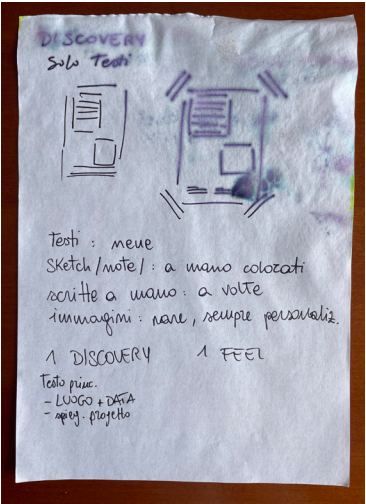 DISCOVERY
Solo Testi
Testi : neue
Sketch/note/ : a mano colorati
scritte a mano : a volte
immagini : rare, sempre personaliz.
1 DISCOVERY 1 FEEL
Testo princ.
- LUOGO + DATA
- spieg. progetto